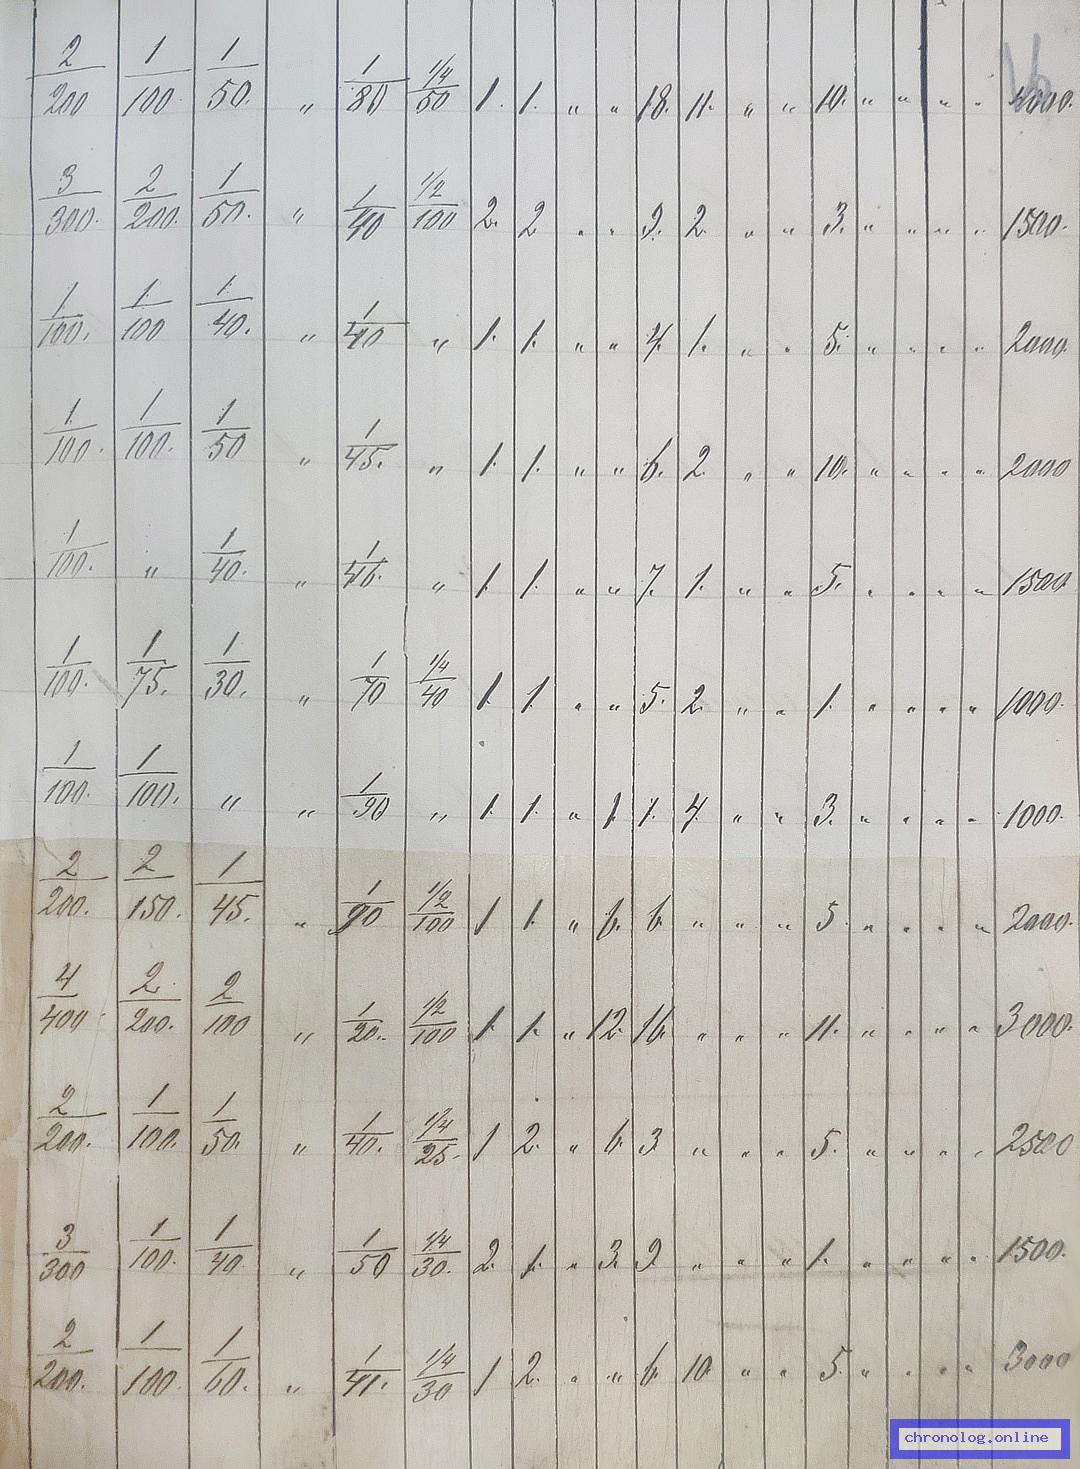 2/200 1/100 1/50. " 1/80 1/4/50 1. 1. " " 18. 11. " " 10. " " " " 4000.
3/300. 2/200. 1/50. " 1/40 1/2/100 2. 2 " " 9. 2. " " 3. " " " " 1500.
1/100. 1/100 1/40. " 1/40 " 1. 1. " " 4. 1. " " 5. " " " " 2000.
1/100. 1/100. 1/50 " 1/45. " 1. 1. " " 6. 2. " " 10. " " " " 2000
1/100. " 1/40. " 1/46. " 1. 1. " " 7. 1. " " 5. " " " " 1500.
1/100. 1/75. 1/30. " 1/70 1/4/40 1. 1. " " 5. 2. " " 1. " " " " 1000.
1/100. 1/100. " " 1/90 " 1. 1. " 1. 1. 4. " " 3. " " " " 1000.
2/200. 2/150. 1/45. " 1/90 1/2/100 1. 1. " 6. 6. " " " 5. " " " " 2000.
4/400 2/200. 2/100 " 1/20. 1/2/100 1. 1. " 12. 16. " " " 11. " " " " 3000.
2/200. 1/100. 1/50. " 1/40. 1/4/25. 1 2. " 6. 3. " " " 5. " " " " 2500
3/300 1/100. 1/40. " 1/50 1/4/30. 2. 1. " 3. 9. " " " 1. " " " " 1500.
2/200. 1/100. 1/60. " 1/41. 1/4/30 1 2. " " 6. 10. " " 5. " " " " 3000
chronolog.online